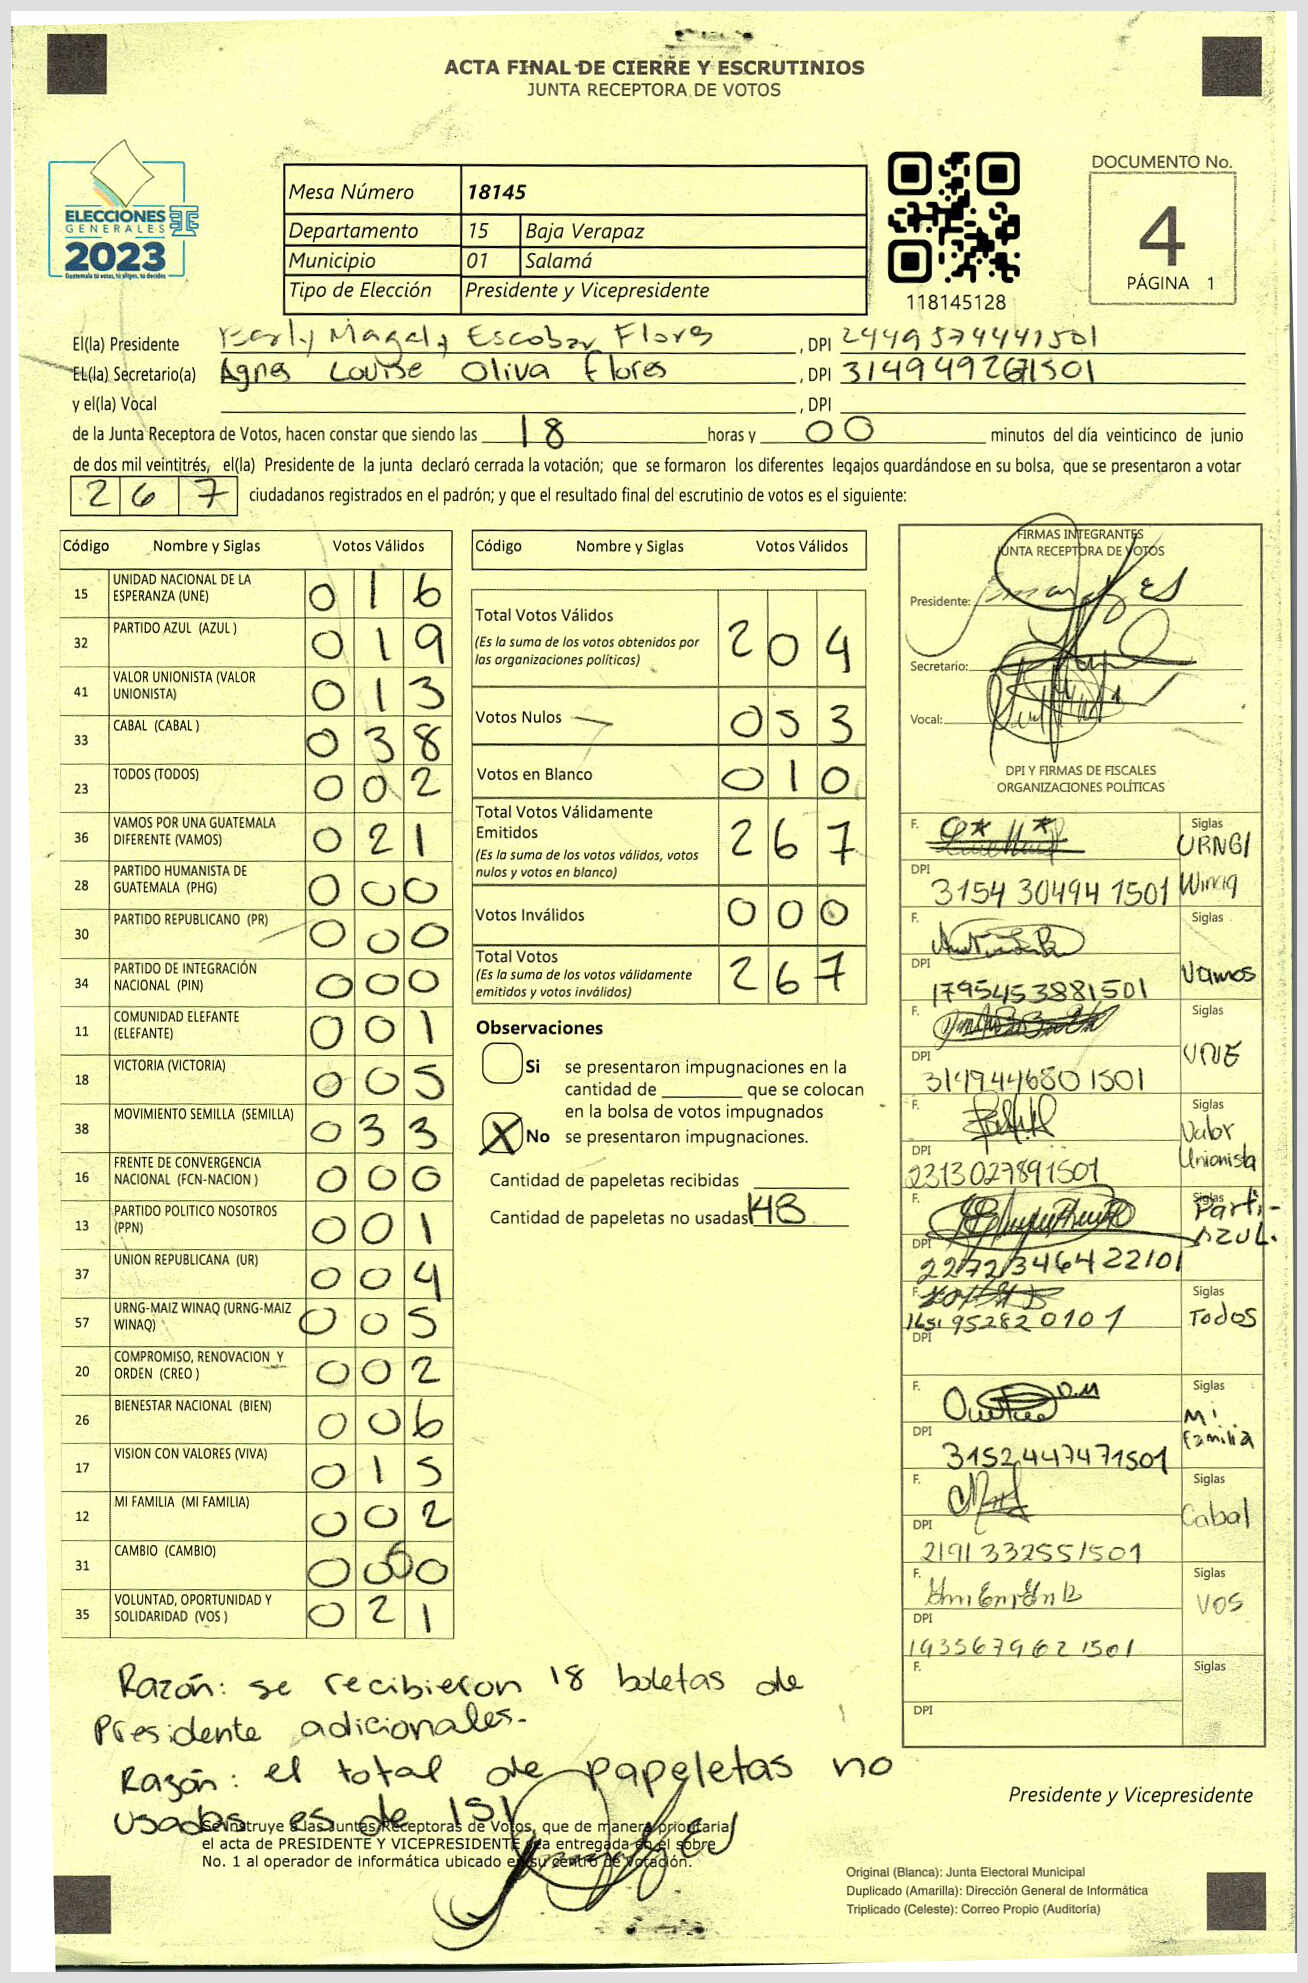 ACTA FINAL DE CIERRE Y ESCRUTINIOS
JUNTA RECEPTORA DE VOTOS
ELECCIONES
GENERALES
2023
Guatemala tú votas, tú eliges, tú decides
Mesa Número 18145
Departamento 15 Baja Verapaz
Municipio 01 Salamá
Tipo de Elección Presidente y Vicepresidente
118145128
DOCUMENTO No.
4
PÁGINA 1
El(la) Presidente Magaly Escobar Flores , DPI 2449574441501
EL(la) Secretario(a) Agnes Louise Oliva Flores , DPI
y el(la) Vocal , DPI
de la Junta Receptora de Votos, hacen constar que siendo las 18 horas y 00 minutos del día veinticinco de junio
de dos mil veintitrés, el(la) Presidente de la junta declaró cerrada la votación; que se formaron los diferentes legajos guardándose en su bolsa, que se presentaron a votar
267 ciudadanos registrados en el padrón; y que el resultado final del escrutinio de votos es el siguiente:
Código Nombre y Siglas Votos Válidos
15 UNIDAD NACIONAL DE LA ESPERANZA (UNE) 016
32 PARTIDO AZUL (AZUL ) 019
41 VALOR UNIONISTA (VALOR UNIONISTA) 013
33 CABAL (CABAL ) 038
23 TODOS (TODOS) 002
36 VAMOS POR UNA GUATEMALA DIFERENTE (VAMOS) 021
28 PARTIDO HUMANISTA DE GUATEMALA (PHG) 000
30 PARTIDO REPUBLICANO (PR) 000
34 PARTIDO DE INTEGRACIÓN NACIONAL (PIN) 000
11 COMUNIDAD ELEFANTE (ELEFANTE) 001
18 VICTORIA (VICTORIA) 005
38 MOVIMIENTO SEMILLA (SEMILLA) 033
16 FRENTE DE CONVERGENCIA NACIONAL (FCN-NACION ) 000
13 PARTIDO POLITICO NOSOTROS (PPN) 001
37 UNION REPUBLICANA (UR) 004
57 URNG-MAIZ WINAQ (URNG-MAIZ WINAQ) 005
20 COMPROMISO, RENOVACION Y ORDEN (CREO ) 002
26 BIENESTAR NACIONAL (BIEN) 006
17 VISION CON VALORES (VIVA) 015
12 MI FAMILIA (MI FAMILIA) 002
31 CAMBIO (CAMBIO)
35 VOLUNTAD, OPORTUNIDAD Y SOLIDARIDAD (VOS ) 021
Código Nombre y Siglas Votos Válidos
Total Votos Válidos 204
(Es la suma de los votos obtenidos por
las organizaciones políticas)
Votos Nulos 053
Votos en Blanco 010
Total Votos Válidamente
Emitidos 267
(Es la suma de los votos válidos, votos
nulos y votos en blanco)
Votos Inválidos 000
Total Votos 267
(Es la suma de los votos válidamente
emitidos y votos inválidos)
Observaciones
Si se presentaron impugnaciones en la
cantidad de que se colocan
en la bolsa de votos impugnados
X No se presentaron impugnaciones.
Cantidad de papeletas recibidas
Cantidad de papeletas no usadas 148
FIRMAS INTEGRANTES
JUNTA RECEPTORA DE VOTOS
Presidente:
Secretario:
Vocal:
DPI Y FIRMAS DE FISCALES
ORGANIZACIONES POLÍTICAS
F. Siglas URNG
DPI 3154 30494 1501 Winaq
F. Siglas
DPI 1795453881501 Vamos
F. Siglas
DPI 3149446801501 UNE
F. Siglas
DPI 2313027891501 Valor Unionista
F. Siglas Parti-
DPI 2272346422101 AZUL.
F. Siglas
DPI 1651952820101 Todos
F. Siglas
DPI 3152447471501 Mi Familia
F. Siglas
DPI 2191332551501 Cabal
F. Siglas
DPI 1935679621501 VOS
F. Siglas
DPI
Razón: se recibieron 18 boletas de
Presidente adicionales.-
Razón: el total de papeletas no
usadas es de 151
Se instruye a las Juntas Receptoras de Votos, que de manera prioritaria
el acta de PRESIDENTE Y VICEPRESIDENTE sea entregada en el sobre
No. 1 al operador de informática ubicado en su centro de votación.
Presidente y Vicepresidente
Original (Blanca): Junta Electoral Municipal
Duplicado (Amarilla): Dirección General de Informática
Triplicado (Celeste): Correo Propio (Auditoría)